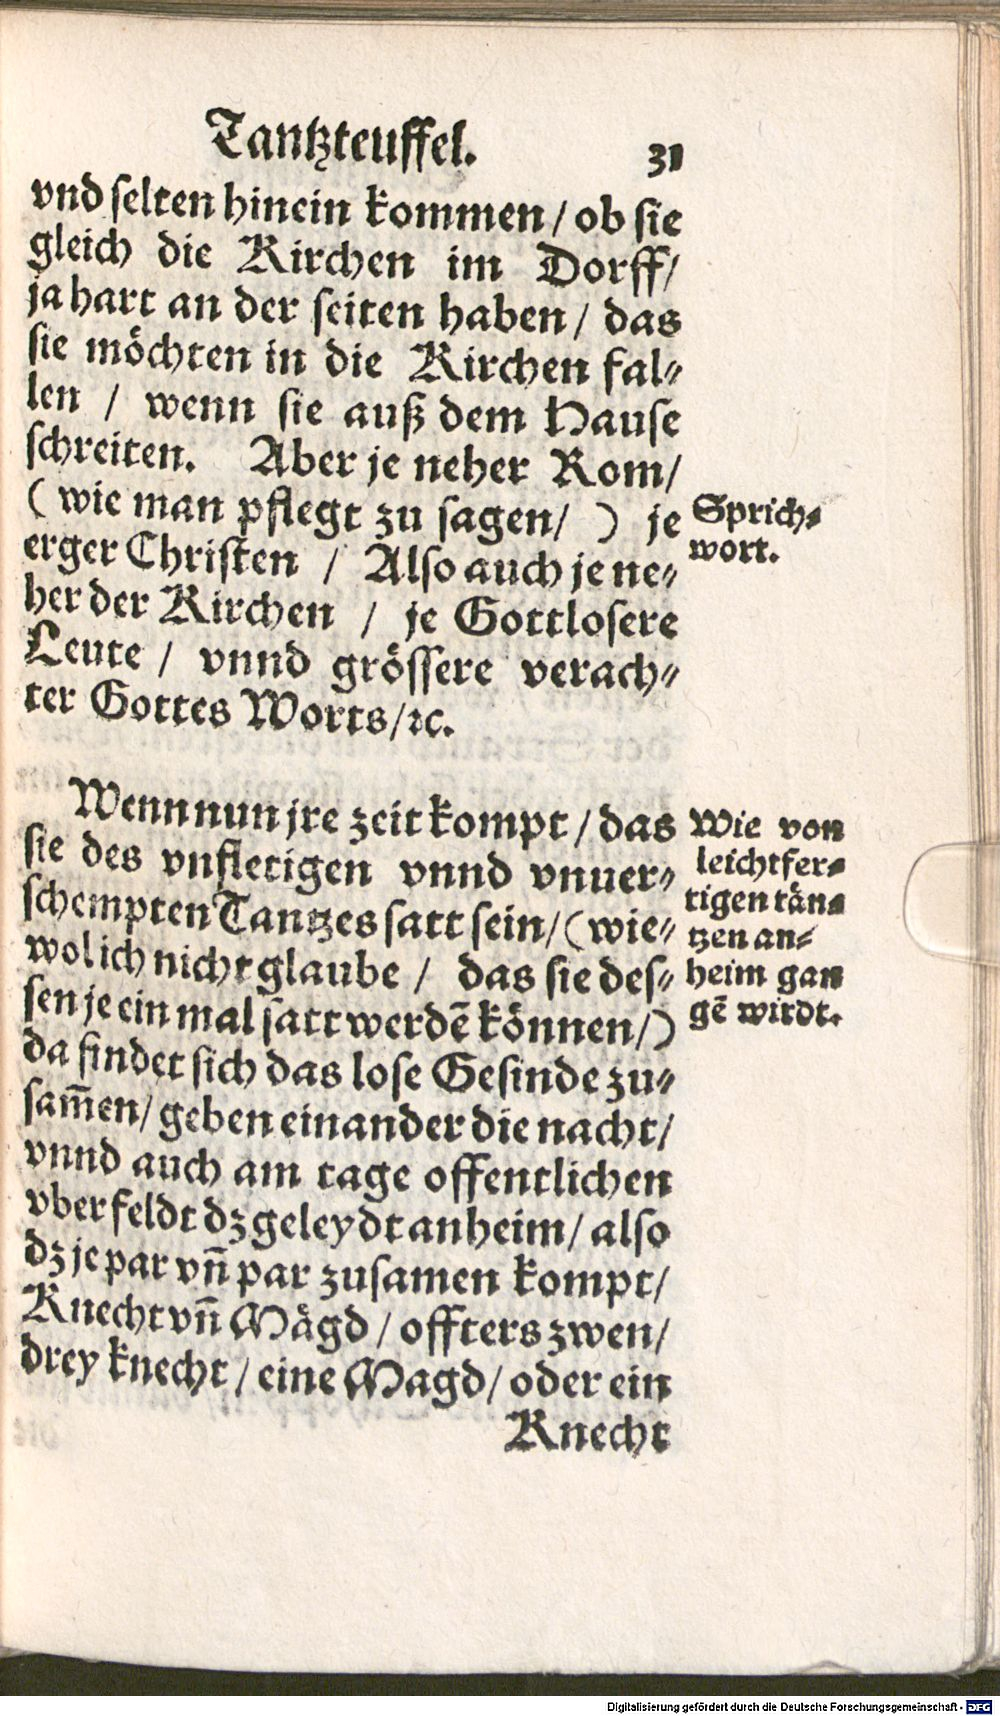 Tantzteuffel. 31
vnd selten hinein kommen / ob sie
gleich die Kirchen im Dorff /
ja hart an der seiten haben / das
sie möchten in die Kirchen fal⸗
len / wenn sie auß dem Hause
schreiten. Aber je neher Rom /
( wie man pflegt zu sagen / ) je
erger Christen / Also auch je ne⸗
her der Kirchen / je Gottlosere
Leute / vnnd grössere verach⸗
ter Gottes Worts / ꝛc.
Sprich⸗
wort.
Wenn nun jre zeit kompt / das
sie des vnfletigen vnnd vnuer⸗
schempten Tantzes satt sein / ( wie⸗
wol ich nicht glaube / das sie des⸗
sen je ein mal satt werdē können / )
da findet sich das lose Gesinde zu⸗
sam̄en / geben einander die nacht /
vnnd auch am tage offentlichen
vber feldt dz geleydt anheim / also
dz je par vn̄ par zusamen kompt /
Knecht vn̄ Mägd / offters zwen /
drey knecht / eine Magd / oder ein
Knecht
Wie von
leichtfer⸗
tigen tän⸗
tzen an⸗
heim gan
gē wirdt.
Digitalisierung gefördert durch die Deutsche Forschungsgemeinschaft - DFG